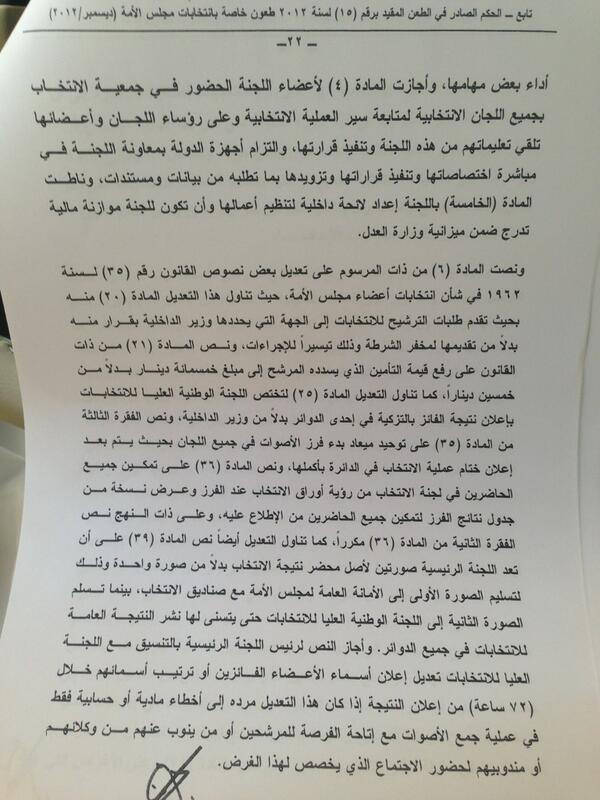 تابع ــ الحكم الصادر في الطعن المقيد برقم (١٥) لسنة ٢٠١٢ طعون خاصة بانتخابات مجلس الأمة (ديسمبر/٢٠١٢)
ــ ٢٢ ــ
أداء بعض مهامها، وأجازت المادة (٤) لأعضاء اللجنة الحضور في جمعية الانتخاب
بجميع اللجان الانتخابية لمتابعة سير العملية الانتخابية وعلى رؤساء اللجان وأعضائها
تلقي تعليماتهم من هذه اللجنة وتنفيذ قرارتها، والتزام أجهزة الدولة بمعاونة اللجنة في
مباشرة اختصاصاتها وتنفيذ قراراتها وتزويدها بما تطلبه من بيانات ومستندات، وناطت
المادة (الخامسة) باللجنة إعداد لائحة داخلية لتنظيم أعمالها وأن تكون للجنة موازنة مالية
تدرج ضمن ميزانية وزارة العدل.
ونصت المادة (٦) من ذات المرسوم على تعديل بعض نصوص القانون رقم (٣٥) لسنة
١٩٦٢ في شأن انتخابات أعضاء مجلس الأمة، حيث تناول هذا التعديل المادة (٢٠) منه
بحيث تقدم طلبات الترشيح للانتخابات إلى الجهة التي يحددها وزير الداخلية بقرار منه
بدلاً من تقديمها لمخفر الشرطة وذلك تيسيراً للإجراءات، ونص المادة (٢١) من ذات
القانون على رفع قيمة التأمين الذي يسدده المرشح إلى مبلغ خمسمائة دينار بدلاً من
خمسين ديناراً، كما تناول التعديل المادة (٢٥) لتختص اللجنة الوطنية العليا للانتخابات
بإعلان نتيجة الفائز بالتزكية في إحدى الدوائر بدلاً من وزير الداخلية، ونص الفقرة الثالثة
من المادة (٣٥) على توحيد ميعاد بدء فرز الأصوات في جميع اللجان بحيث يتم بعد
إعلان ختام عملية الانتخاب في الدائرة بأكملها، ونص المادة (٣٦) على تمكين جميع
الحاضرين في لجنة الانتخاب من رؤية أوراق الانتخاب عند الفرز وعرض نسخة من
جدول نتائج الفرز لتمكين جميع الحاضرين من الإطلاع عليه، وعلى ذات النهج نص
الفقرة الثانية من المادة (٣٦) مكرراً، كما تناول التعديل أيضاً نص المادة (٣٩) على أن
تعد اللجنة الرئيسية صورتين لأصل محضر نتيجة الانتخاب بدلاً من صورة واحدة وذلك
لتسليم الصورة الأولى إلى الأمانة العامة لمجلس الأمة مع صناديق الانتخاب، بينما تسلم
الصورة الثانية إلى اللجنة الوطنية العليا للانتخابات حتى يتسنى لها نشر النتيجة العامة
للانتخابات في جميع الدوائر. وأجاز النص لرئيس اللجنة الرئيسية بالتنسيق مع اللجنة
العليا للانتخابات تعديل إعلان أسماء الأعضاء الفائزين أو ترتيب أسمائهم خلال
(٧٢ ساعة) من إعلان النتيجة إذا كان هذا التعديل مرده إلى أخطاء مادية أو حسابية فقط
في عملية جمع الأصوات مع إتاحة الفرصة للمرشحين أو من ينوب عنهم من وكلائهم
أو مندوبيهم لحضور الاجتماع الذي يخصص لهذا الغرض.